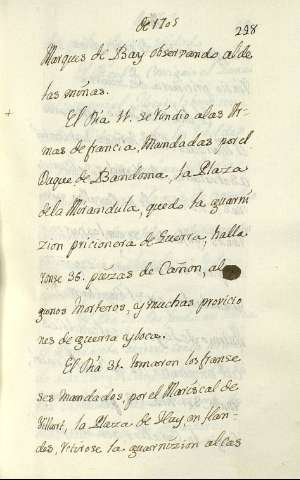 de 1705
238
Marques de Bay observando al de
las minas.
El Dia 11. se rindio a las Ar-
mas de francia, Mandadas por el
Duque de Bandoma, la Plaza
dela Mirandula, quedo la guarni
zion pricionera de Guerra; halla
ronse 36. piezas de Cañon, al
gunos Morteros, y muchas provicio
nes de guerra y boca.
El Dia 31. tomaron los franse
ses mandados, por el Mariscal de
Villart, la Plaza de Huy, en flan-
des, retirose la guarnizion al Cas